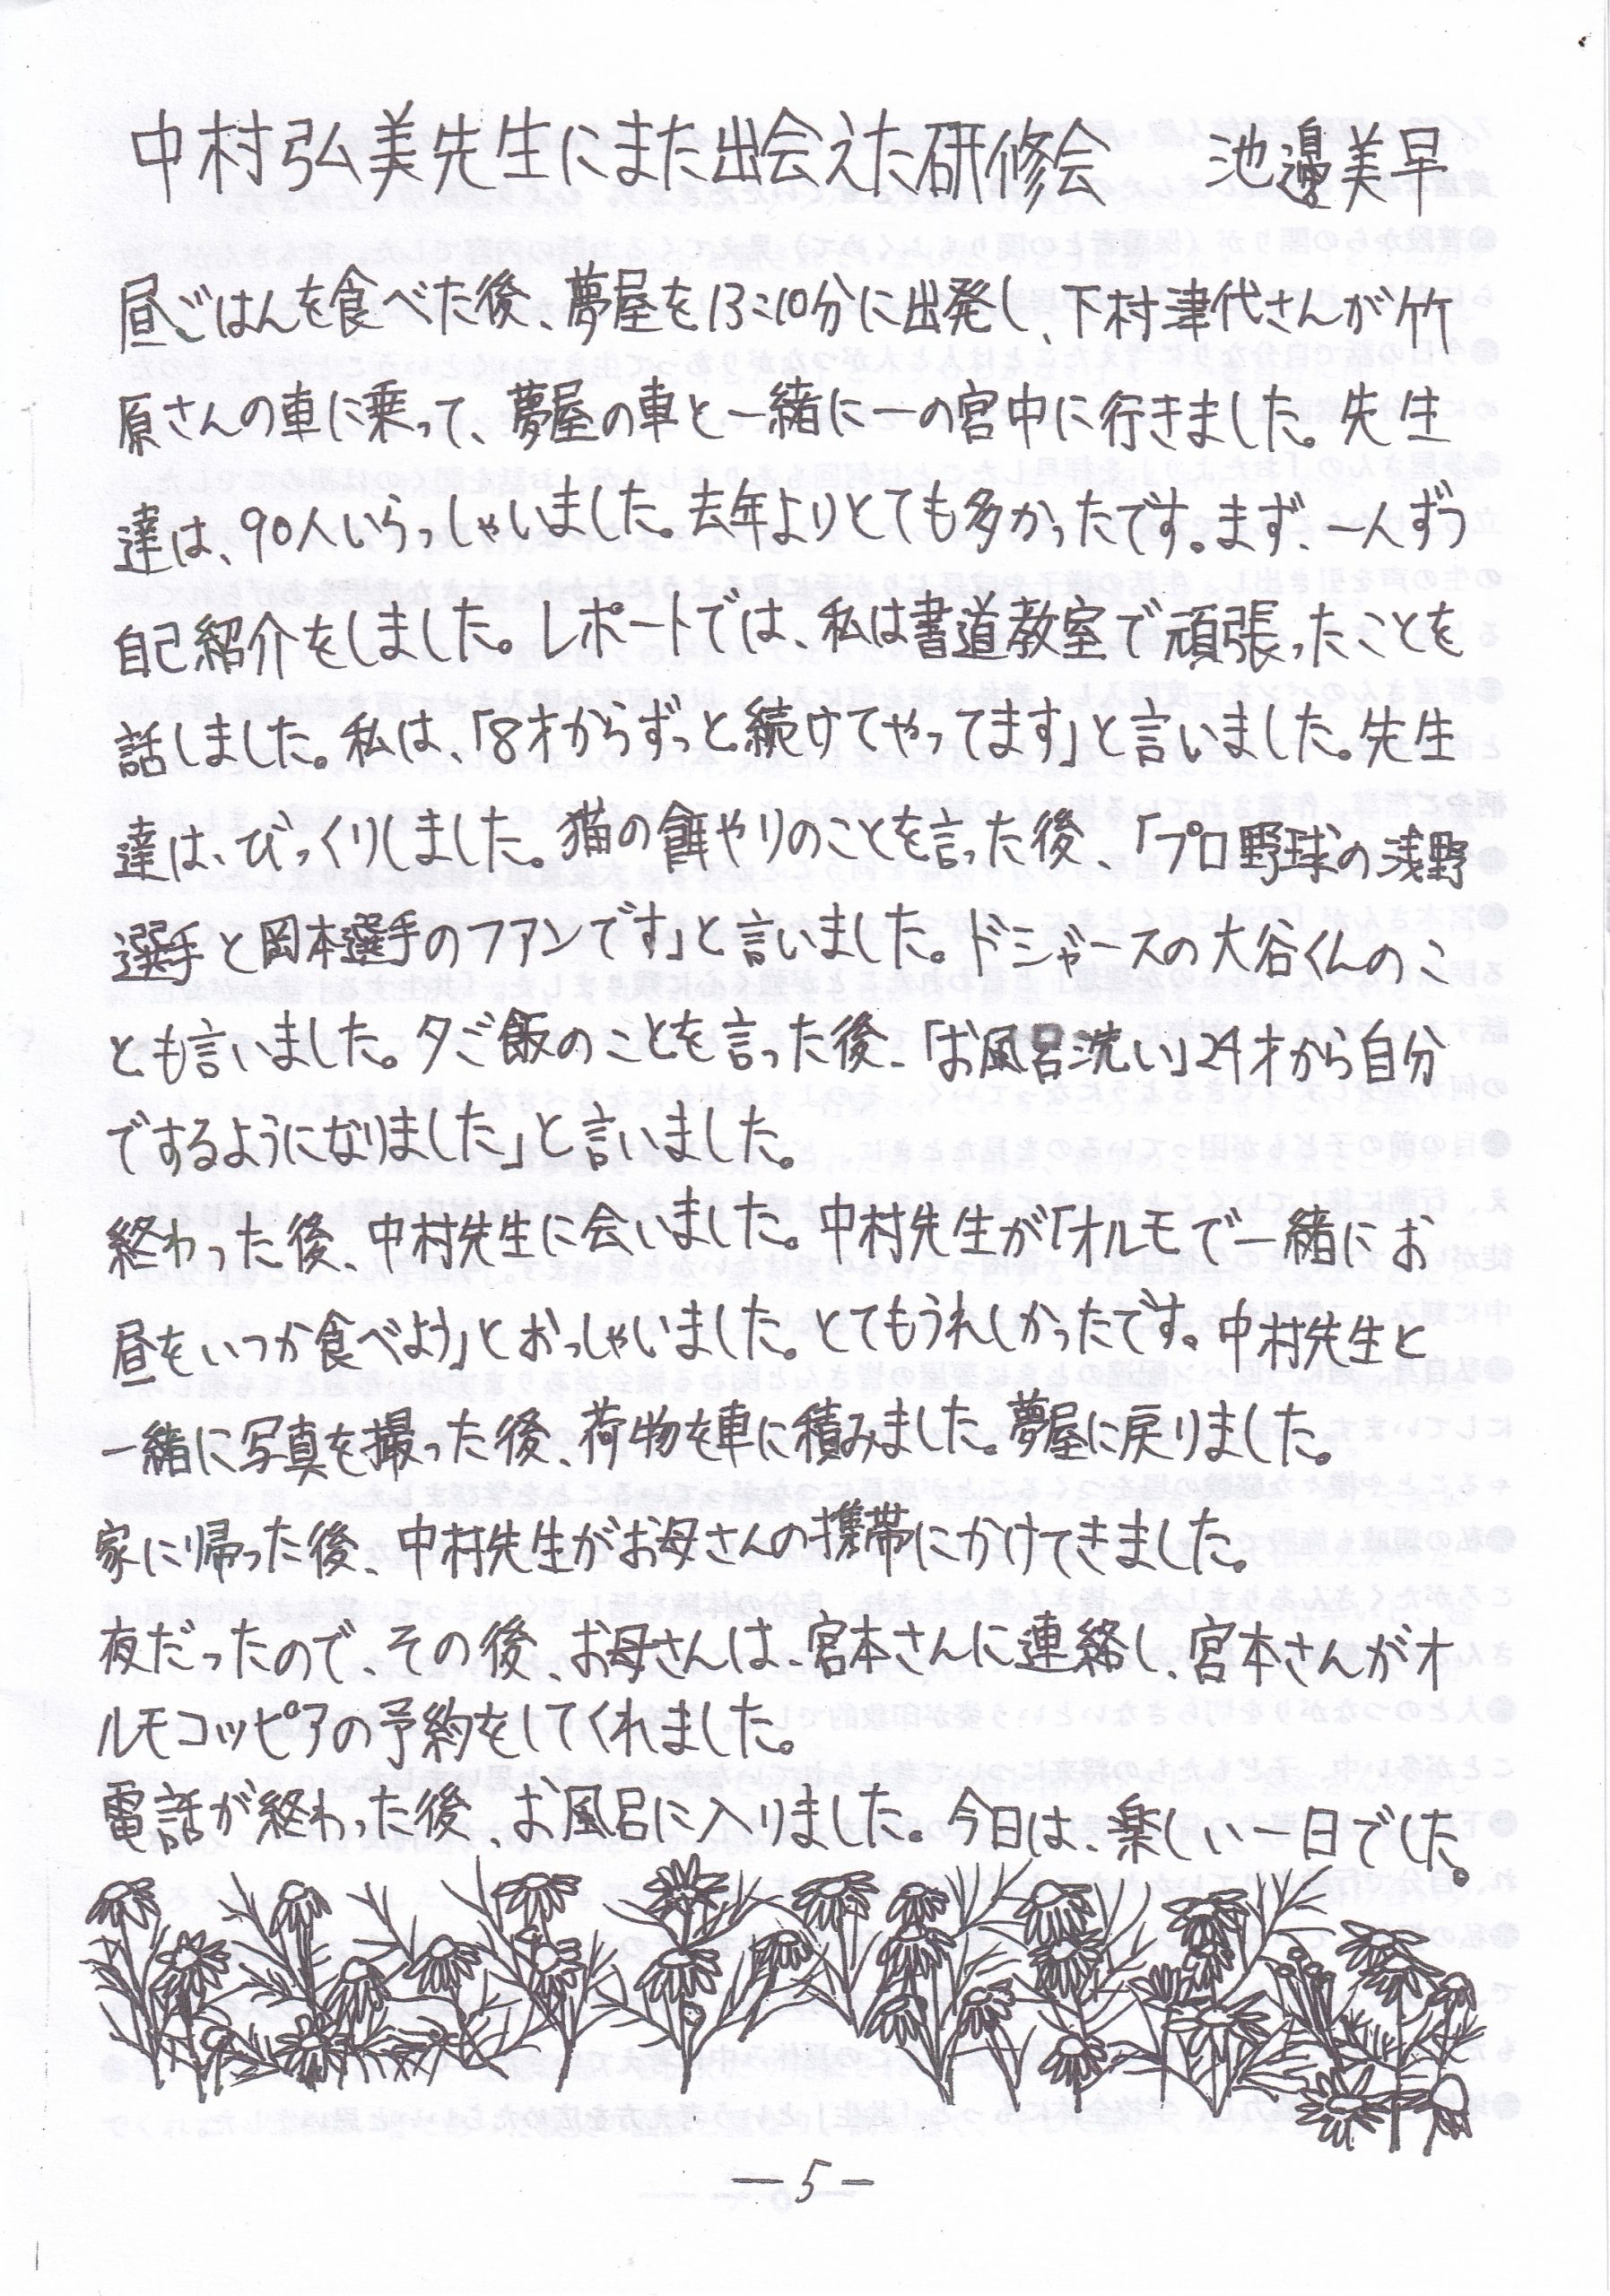 中村弘美先生にまた出会えた研修会　池邊美早
昼ごはんを食べた後、夢屋を13:10分に出発し、下村津代さんが竹
原さんの車に乗って、夢屋の車と一緒に一の宮中に行きました。先生
達は、90人いらっしゃいました。去年よりとても多かったです。まず、一人ずつ
自己紹介をしました。レポートでは、私は書道教室で頑張ったことを
話しました。私は、「8才からずっと続けてやってます」と言いました。先生
達は、びっくりしました。猫の餌やりのことを言った後、「プロ野球の浅野
選手と岡本選手のファンです」と言いました。ドジャースの大谷くんのこ
とも言いました。夕ご飯のことを言った後、「お風呂洗い」24才から自分
でするようになりました」と言いました。
終わった後、中村先生に会いました。中村先生が「オルモで一緒にお
昼をいつか食べよう」とおっしゃいました。とてもうれしかったです。中村先生と
一緒に写真を撮った後、荷物を車に積みました。夢屋に戻りました。
家に帰った後、中村先生がお母さんの携帯にかけてきました。
夜だったので、その後、お母さんは、宮本さんに連絡し、宮本さんがオ
ルモコッピアの予約をしてくれました。
電話が終わった後、お風呂に入りました。今日は、楽しい一日でした。
－5－